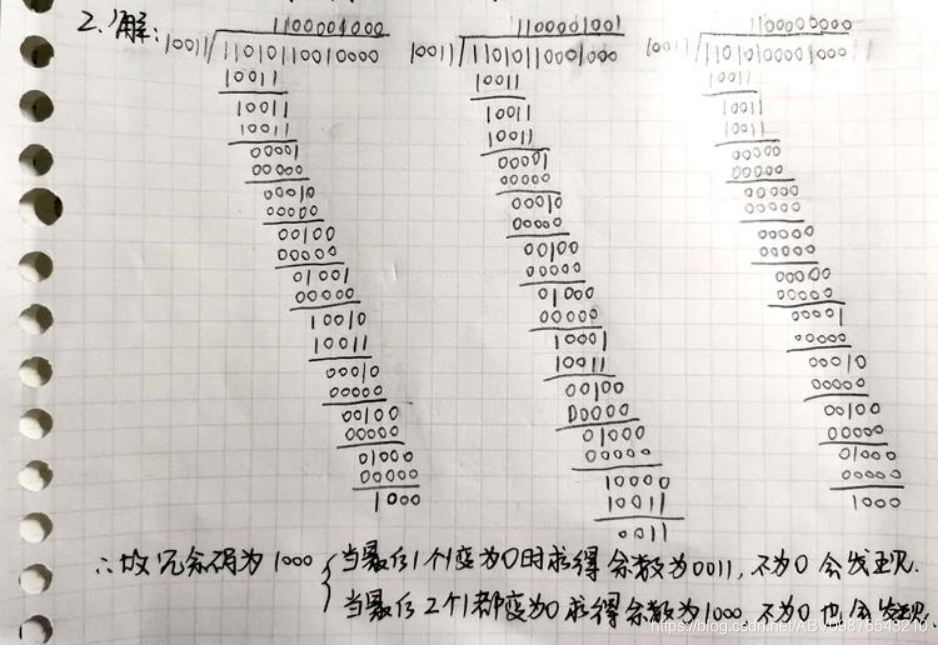 2. 解:
1100001000 110001001 110000000
10011 11010110010000 10011 11010110001000 10011 11010100001000
10011 10011 10011
10011 10011 10011
10011 10011 10011
00001 00001 00000
00000 00000 00000
00010 00010 00000
00000 00000 00000
00100 00100 00000
00000 00000 00000
01001 01000 00000
00000 00000 00000
10010 10001 00001
10011 10011 00000
00010 00100 00010
00000 00000 00000
00100 01000 00100
00000 00000 00000
01000 10000 01000
00000 10011 00000
1000 0011 1000
∴故冗余码为1000 { 当最后1个1变为0时求得余数为0011, 不为0 会发现.
当最后2个1都变为0 求得余数为1000 不为0 也会发现.
https://blog.csdn.net/ABV09876543210